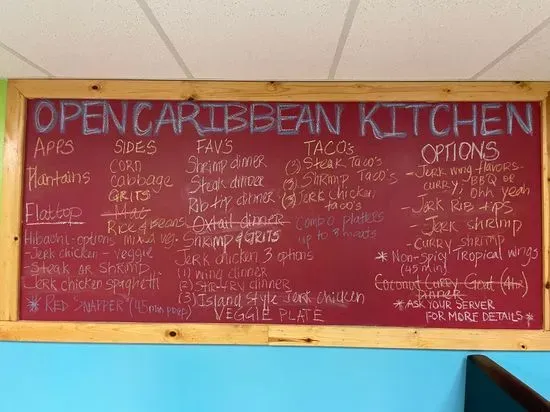 OPEN CARIBBEAN KITCHEN
APPS
Plantains
Flattop
Hibachi-options mixed veg.
-Jerk chicken - veggie
-Steak or Shrimp
Jerk chicken spaghetti
* RED SNAPPER (45min prep)
SIDES
CORN
cabbage
GRITS
Rice & Beans
FAVS
Shrimp dinner
Steak dinner
Rib tip dinner
Oxtail dinner
Shrimp & GRITS
Jerk chicken 3 options
(1) wing dinner
(2) Stir-fry dinner
(3) Island Style Jerk chicken
VEGGIE PLATE
TACO's
(3) Steak Taco's
(3) Shrimp Taco's
(3) Jerk chicken
taco's
Combo platters
up to 3 meats
OPTIONS
-Jerk wing flavors-
curry, BBQ or
Ohh yeah
-Jerk Rib tips
-Jerk shrimp
-curry shrimp
* Non-Spicy Tropical wings
(45 min)
Coconut Curry Goat (4hr)
Dinner
* ASK YOUR SERVER
FOR MORE DETAILS *